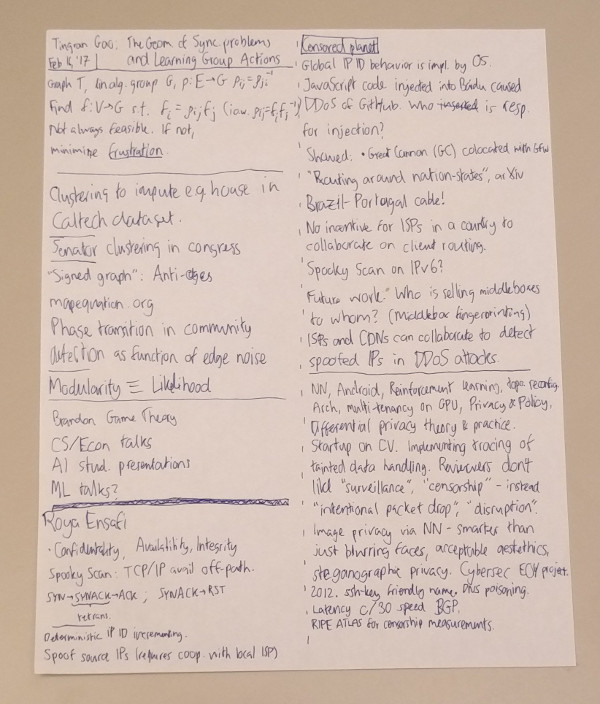 Tingran Gao. The Geom of Sync problems
Feb 16, '17 and Learning Group Actions
Graph T, lin.alg. group G, ρ: E→G ρij = ρji⁻¹
Find f: V→G s.t. fi = ρij fj (iow. ρij = fi fj⁻¹)
Not always feasible. If not,
minimize frustration.
Clustering to impute e.g. house in
Caltech dataset.
Senator clustering in congress
"Signed graph": Anti-edges
mapequation.org
Phase transition in community
detection as function of edge noise
Modularity ≡ Likelihood
Brandon Game Theory
CS/Econ talks
AI stud. presentations
ML talks?
Roya Ensafi
· Confidentiality, Availability, Integrity
Spooky Scan: TCP/IP avail off-path.
SYN→SYNACK→ACK ; SYNACK→RST
retrans.
Deterministic IP ID incrementing.
Spoof source IPs (requires coop. with local ISPs)
Censored planet
Global IP ID behavior is impl. by OS.
JavaScript code injected into Baidu caused
DDoS of GitHub. Who is resp.
for injection?
Showed. • Great Cannon (GC) colocated with GFW
"Routing around nation-states", arXiv
Brazil-Portugal cable!
No incentive for ISPs in a country to
collaborate on client routing.
Spooky Scan on IPv6?
"Future work." Who is selling middleboxes
to whom? (middlebox fingerprinting)
ISPs and CDNs can collaborate to detect
spoofed IPs in DDoS attacks.
NN, Android, Reinforcement learning, topo reconfig.
Arch, multi-tenancy on GPU, Privacy & Policy,
Differential privacy theory & practice.
Startup on CV. Implementing tracing of
tainted data handling. Reviewers don't
like "surveillance", "censorship" - instead
"intentional packet drop", "disruption".
Image privacy via NN - smarter than
just blurring faces, acceptable aestethics,
steganographic privacy. Cybersec ECH projet.
2012. ssh-key friendly name, DNS poisoning.
Latency c/30 speed BGP.
RIPE ATLAS for censorship measurements.